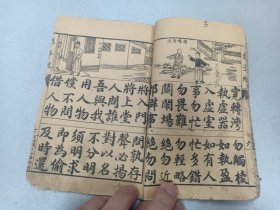 寬轉灣 勿觸棱
執虛器 如執盈
入虛室 如有人
事勿忙 忙多錯
勿畏難 勿輕略
鬥鬧場 絕勿近
邪僻事 絕勿問
將入門 問孰存
將上堂 聲必揚
人問誰 對以名
吾與我 不分明
用人物 須明求
倘不問 即為偷
借人物 及時還